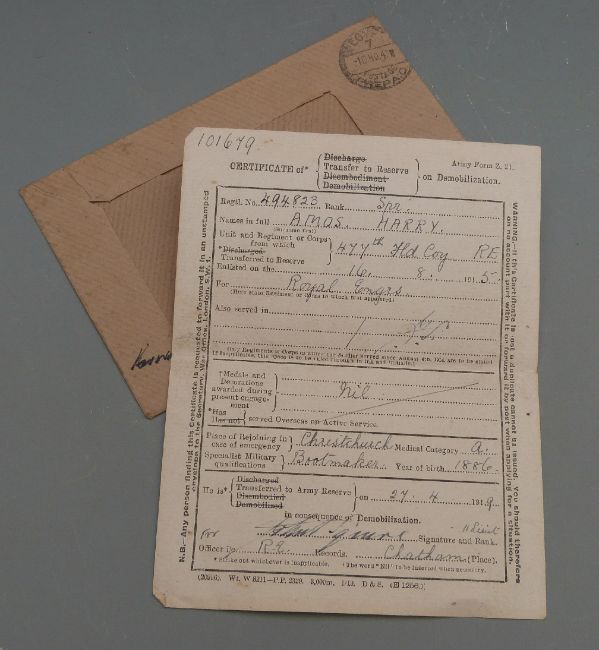 101679.
CERTIFICATE of* Discharge Transfer to Reserve Disembodiment Demobilization on Demobilization.
Army Form Z. 21.
Regtl. No. 494823 Rank Spr.
Names in full AMOS HARRY.
(Surname first)
Unit and Regiment or Corps from which
*Discharged
Transferred to Reserve
477th Fld Coy RE
Enlisted on the 16. 8. 1915.
For Royal Engrs
(Here state Regiment or Corps to which first appointed)
Also served in
†Medals and
Decorations
awarded during
present engage-
ment
Nil
*Has
Has not served Overseas on Active Service.
Place of Rejoining in
case of emergency
Christchurch Medical Category A.
Specialist Military
qualifications
Bootmaker. Year of birth 1886.
He is* Discharged
Transferred to Army Reserve
Disembodied
Demobilized
on 27. 4. 1919.
In consequence of Demobilization.
for Lieut Signature and Rank.
Officer i/c R.E. Records. Chatham (Place).
*Strike out whichever is inapplicable. †The word "Nil" to be inserted when necessary.
N.B.—Any person finding this Certificate is requested to forward it in an unstamped
envelope to the Secretary, War Office, London, S.W. 1.
WARNING.—If this Certificate is lost a duplicate cannot be issued. You should therefore
on no account part with it or forward it by post when applying for a situation.